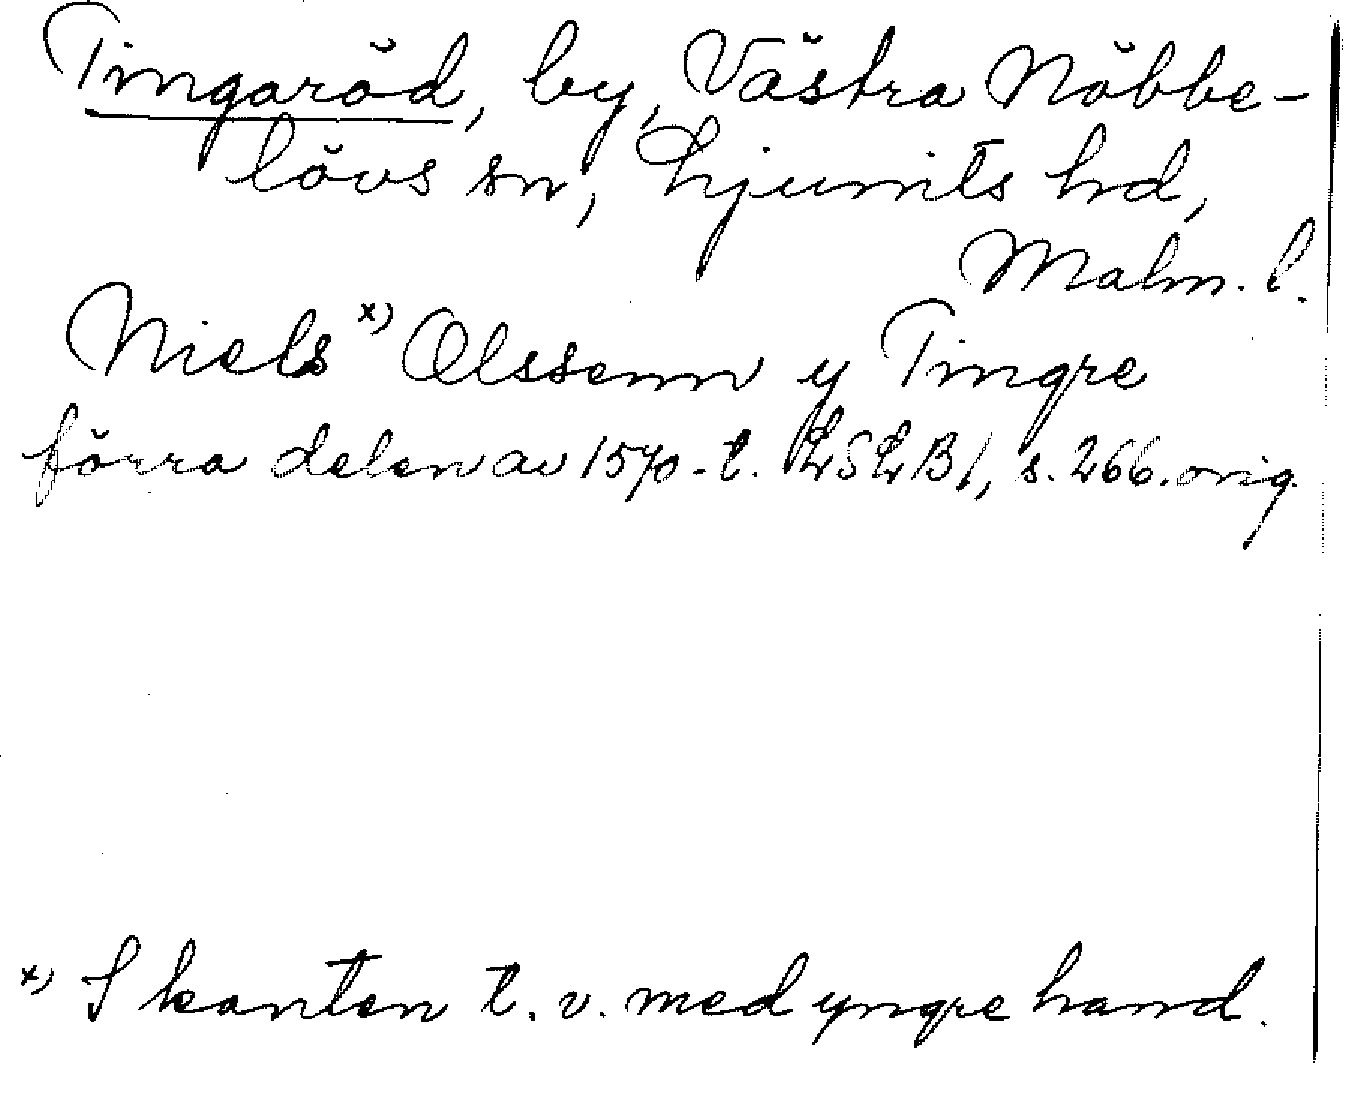 Tingaröd, by, Västra Nöbbe-
lövs sn, Ljunits hd,
Malm. l.
Niels x) Olssenn y Tingre
förra delen av 1570-t. LSLB1, s. 266. orig.
x) I kanten t. v. med yngre hand.